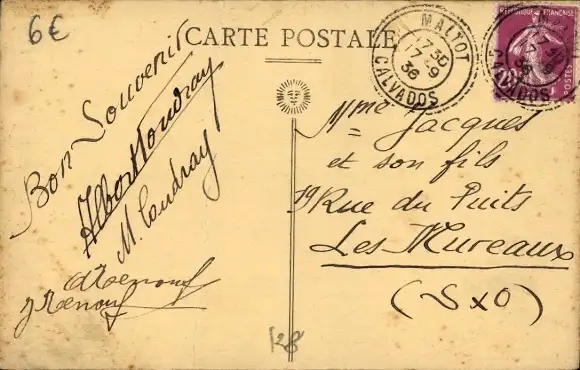 6€
CARTE POSTALE
MALTOT
17 30
17-9
36
CALVADOS
REPUBLIQUE FRANÇAISE
Bon Souvenir
Albert Coudray
M. Coudray
Mme Jacques
et son fils
19 Rue du Puits
Les Mureaux
(S x O)
128